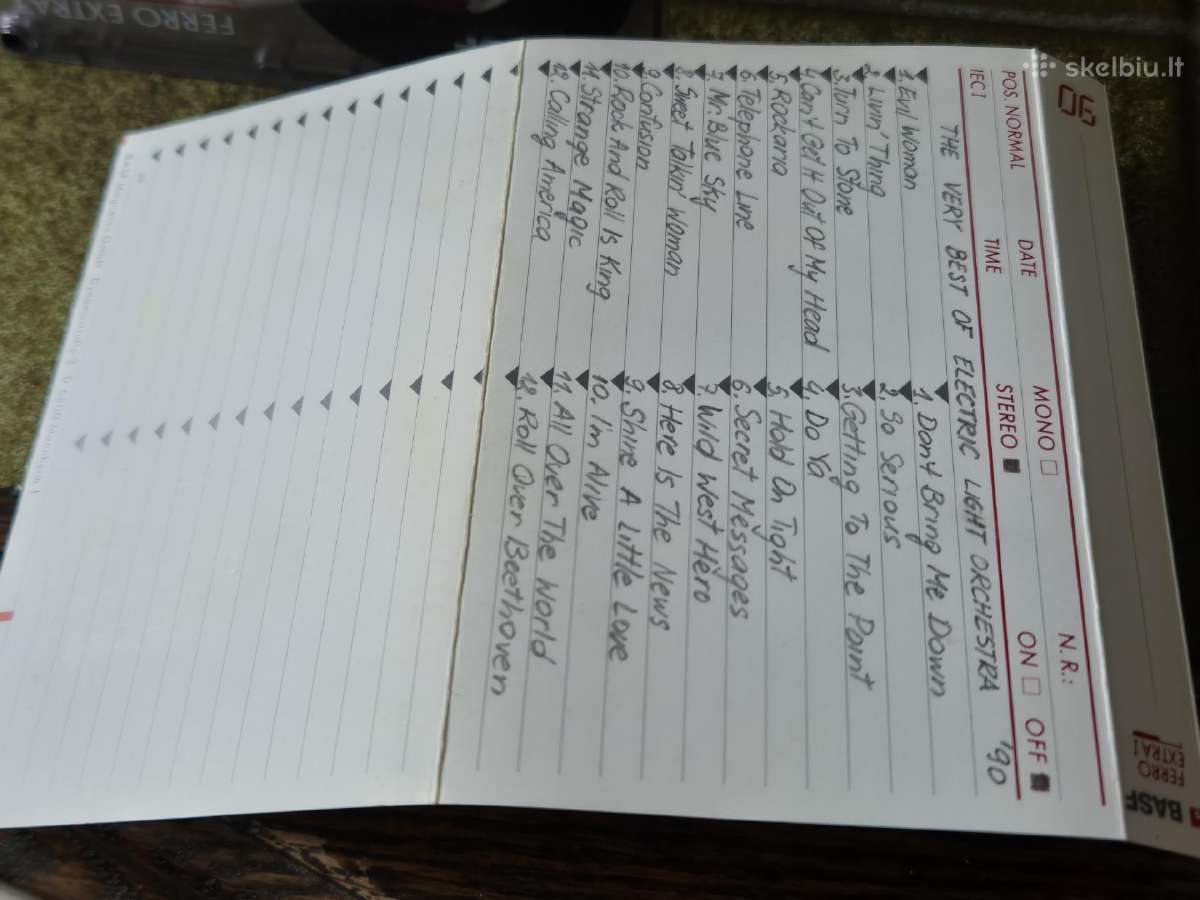 FERRO EXTRA I
skelbiu.lt
90
BASF
FERRO EXTRA I
POS. NORMAL DATE MONO N.R.: ON OFF
IEC I TIME STEREO
THE VERY BEST OF ELECTRIC LIGHT ORCHESTRA '90
1. Evil Woman
2. Livin' Thing
3. Turn To Stone
4. Can't Get It Out Of My Head
5. Rockaria
6. Telephone Line
7. Mr. Blue Sky
8. Sweet Talkin' Woman
9. Confusion
10. Rock And Roll Is King
11. Strange Magic
12. Calling America
1. Don't Bring Me Down
2. So Serious
3. Getting To The Point
4. Do Ya
5. Hold On Tight
6. Secret Messages
7. Wild West Hero
8. Here Is The News
9. Shine A Little Love
10. I'm Alive
11. All Over The World
12. Roll Over Beethoven